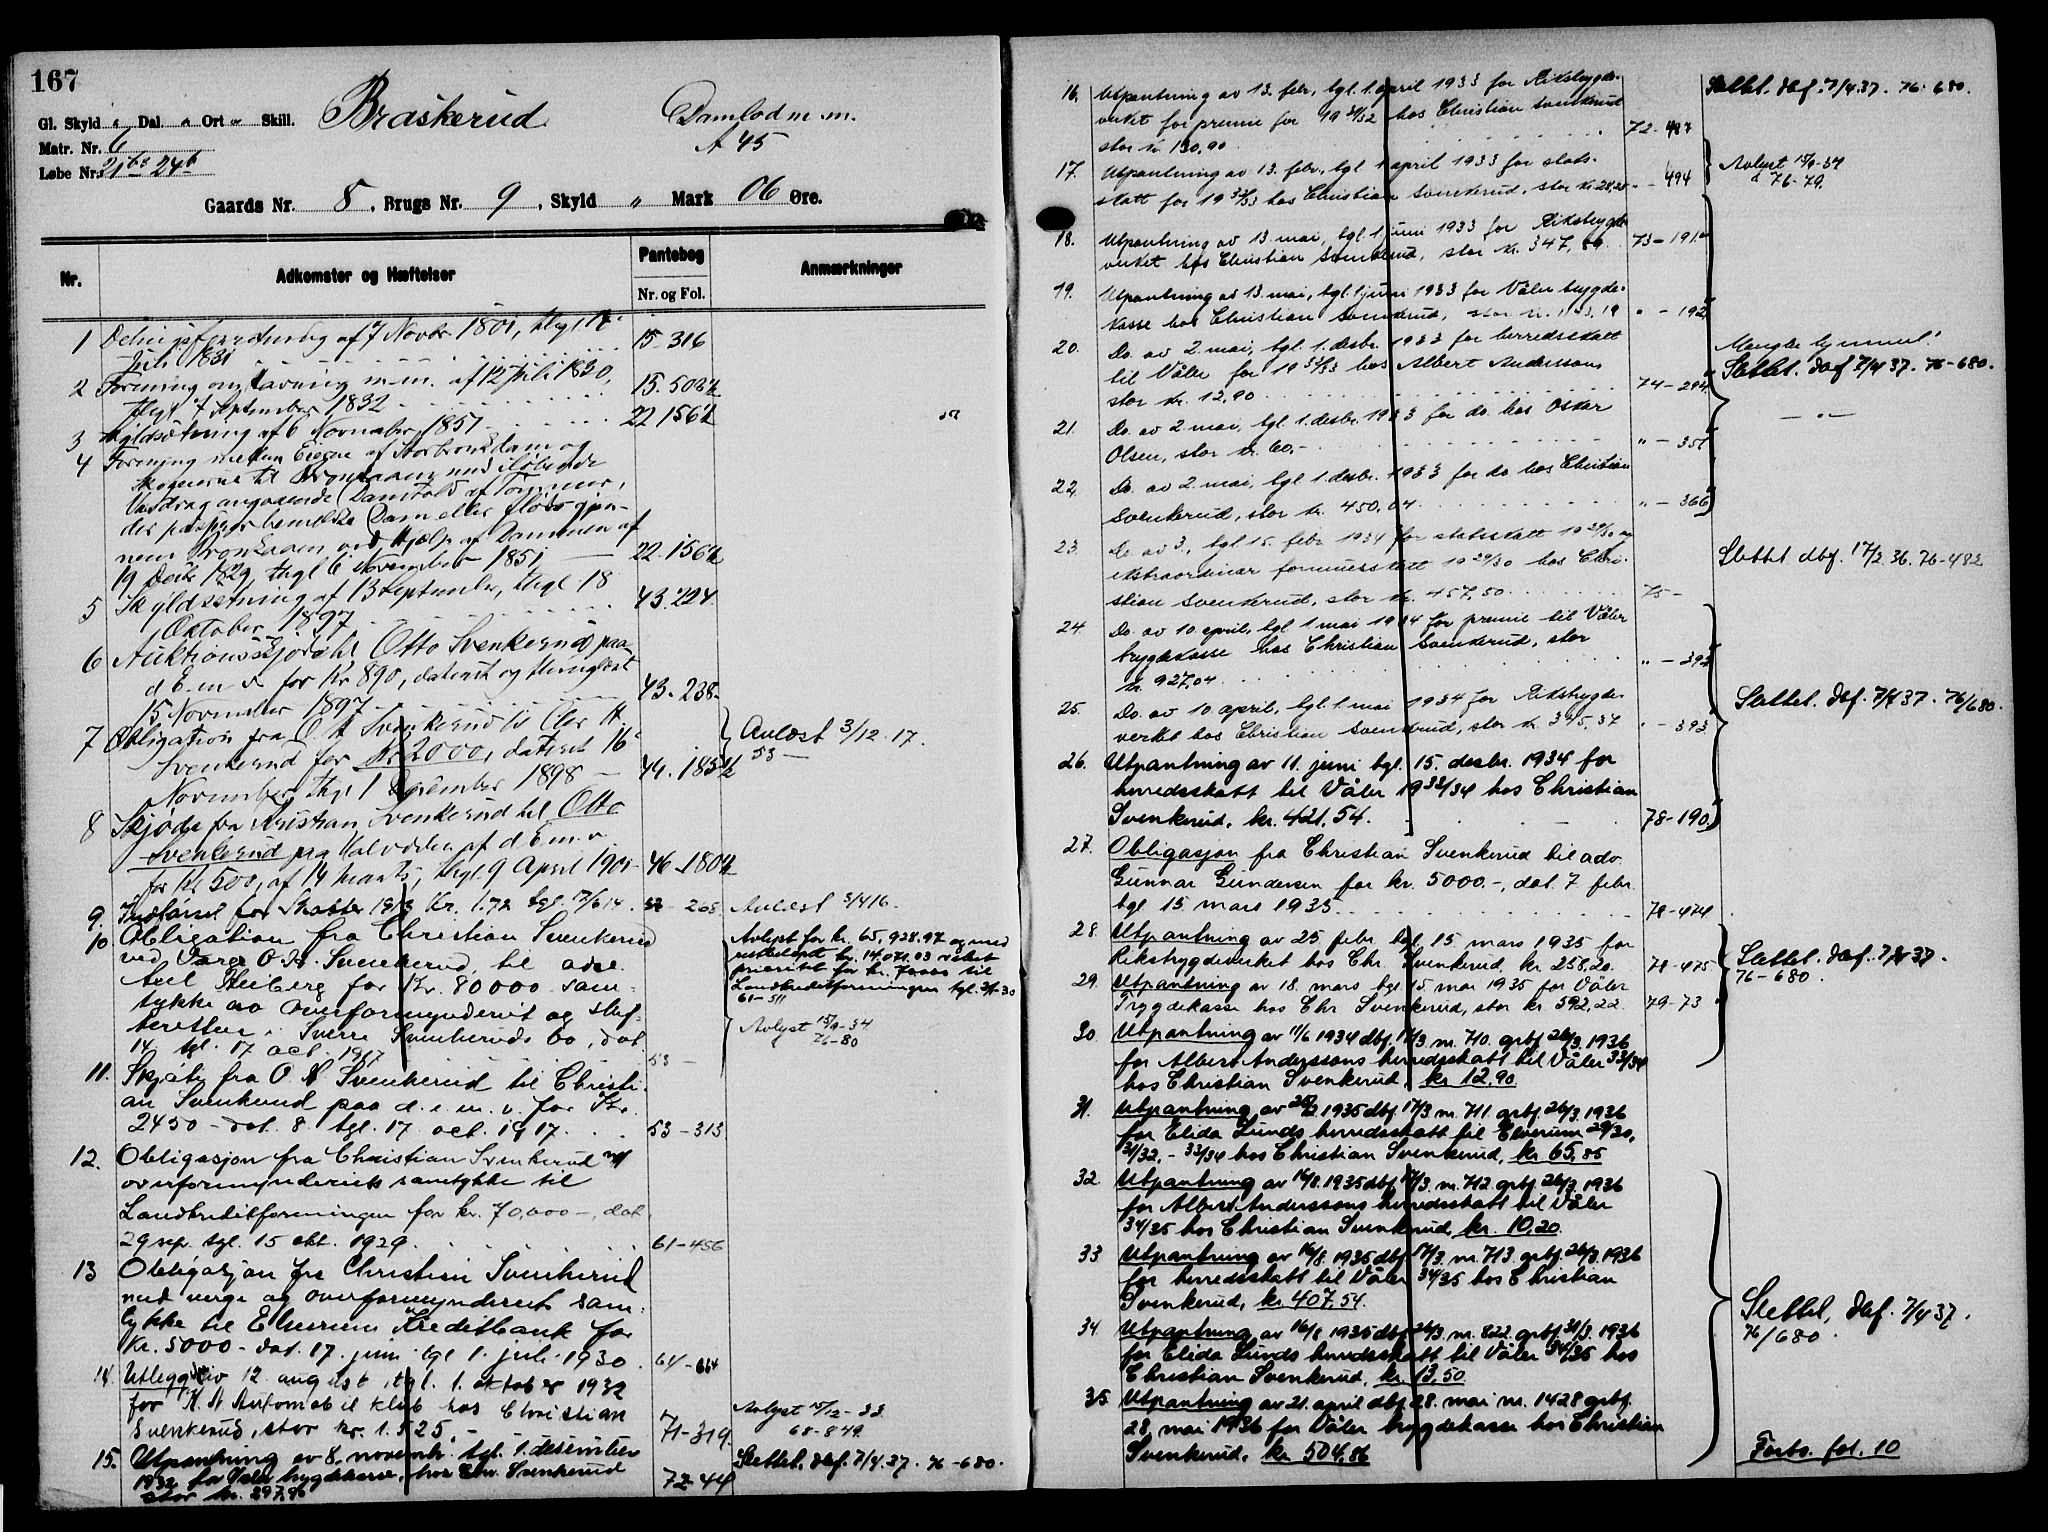 167
Braskerud Damlod m.m.
Gl. Skyld " Dal. " Ort " Skill.
A 45
Matr. Nr. 6
Løbe Nr. 21 b 24 b
Gaards Nr. 8, Brugs Nr. 9, Skyld " Mark 06 Øre.
Nr. Adkomster og Hæftelser Pantebog Anmærkninger
Nr. og Fol.
1 af 7 Novbr 1801, thgl.
Juli 1831 15-316
2 Forening om m.m. af 12 Juli 1830,
thgl. 7 September 1832 15.502½
3 Skyldsætning af 6 November 1851 22 156½
4 Forening mellem Eierne af dam og
Skogeierne til med
Vasdrag angaaende Damhold af Tømmer,
der passerer bemeldte Dam eller flødes gjen-
nem ved Hjælp af Dammen af
19 Decbr 1829, thgl 6 November 1851 22.156½
5 Skyldsætning af 13 September, thgl 18
Oktober 1897 43.224
6 Auktionsskjøde til Otto Svenkerud paa
d. E. m. v. for Kr 890, dateret og thinglæst
15 November 1897 43-238
7 Obligation fra O. K. Svenkerud til
Svenkerud for Kr 2000, dateret 16
November, thgl 1 Desember 1898 44.185½
Avlæst 3/12 17.
53-
8 Skjøde fra Kristian Svenkerud til Otto
Svenkerud paa Halvdelen af d. E. m. v.
for Kr 500, af 14 Marts, thgl 9 April 1901 46-180½
9. Indførsel for Skatter 1913 Kr. 1.72 tgl. 7/6 14. - 268 Avlæst 3/4 16.
10 Obligation fra Christian Svenkerud
ved Værge O. K. Svenkerud til
Axel Heiberg for Kr. 80000 sam-
tykke av Overformynderiet og skif-
teretten i Sverre Svenkeruds bo, dat.
14. tgl. 17 oct. 1917 53-
Avlyst for kr. 65,928.97 og med
restbeløpet kr. 14.071.03 veket
prioritet for kr. 70000 til
Landkreditforeningen tgl. -30
61-511
Avlyst 15/9-34
76-80
11. Skjøte fra O. K. Svenkerud til Christi-
an Svenkerud paa d. e. m. v. for Kr.
2450 - dat. 8. tgl. 17. oct. 1917. 53-313
12. Obligasjon fra Christian Svenkerud m/
overformynderiets samtykke til
Landkreditforeningen for kr. 70,000-, dat
29 sep. tgl. 15 okt. 1929. 61-456
13 Obligasjon fra Christian Svenkerud
med verge og overformynderiets sam-
tykke til Elverum Kreditbank for
Kr. 5000- dat. 17. juni tgl 1. juli 1930. 61-664
14. Utlegg av 12. august, tgl. 1. oktober 1932
for K. N. Automobilklub hos Christian
Svenkerud, stor kr. 1.525,- 71-319.
Avlyst 15/12-33
68-849.
15. Utpantning av 8. novembr. tgl. 1. desember
1932 for Våler trygdekasse, hos Chr. Svenkerud
stor kr. 297,96 72-44
Slettet. dbf. 7/4.37. 76-680.
16. Utpantning av 13. febr, tgl. 1. april 1933 for Rikstrygde-
verket for premie for 1931/32 hos Christian Svenkerud
stor kr. 130,90 72-487
Slettet. dbf. 7/4 37. 76-680.
17. Utpantning av 13. febr, tgl 1 april 1933 for stats-
skatt for 1932/33 hos Christian Svenkerud, stor kr. 28,28 " - 494
Avlyst 15/9-34
76-79.
18. Utpantning av 13 mai, tgl. 1 juni 1933 for Rikstrygde-
verket hos Christian Svenkerud, stor kr. 347, 73-191
19. Utpantning av 13. mai, tgl. 1 juni 1933 for Våler trygde-
kasse hos Christian Svenkerud, stor kr. " - 192
20. Do. av 2. mai, tgl. 1. desbr. 1933 for herredsskatt
til Våler for 1932/33 hos Albert Anderssons
stor kr. 12,90 74-294
Slettet. dbf 7/4 37. 76-680.
21. Do. av 2 mai, tgl 1. desbr. 1933 for do. hos Oskar
Olsen, stor kr. 60,- " - 351
— " —
22. Do. av 2. mai, tgl 1. desbr. 1933 for do hos Christian
Svenkerud, stor kr. 450,04 " - 366
23. Do. av 3, tgl 15. febr 1934 for statsskatt 1929/30 og
ekstraordinær formuesskatt 1929/30 hos Chri-
stian Svenkerud, stor kr. 457,50 75-
Slettet dbf. 17/2 36. 76-482
24. Do. av 10 april, tgl 1 mai 1934 for premie til Våler
trygdekasse hos Christian Svenkerud, stor
kr. 927,04 " - 392
25. Do. av 10 april, tgl. 1. mai 1934 for Rikstrygde-
verket hos Christian Svenkerud, stor kr. 37 " - 393
Slettet. dbf. 7/4 37. 76/680.
26. Utpantning av 11. juni tgl. 15. desbr. 1934 for
herredsskatt til Våler 1933/34 hos Christian
Svenkerud, kr. 421.54. 78-190
27. Obligasjon fra Christian Svenkerud til adv.
Gunnar Gundersen for kr. 5000.-, dat. 7 febr.
tgl 15. mars 1935 78-474
28. Utpantning av 25. febr. tgl. 15 mars 1935 for
Rikstrygdeverket hos Chr. Svenkerud. kr. 258,20. 78-475
Slettet. dbf. 7/4 37.
76-680.
29. Utpantning av 18. mars tgl 15 mai 1935 for Våler
Trygdekasse hos Chr Svenkerud, stor kr 592,22 79-73
30 Utpantning av 11/6 1934 dbf. 17/3 nr. 710. grbf. 26/3. 1936
for Albert Anderssons herredsskatt til Våler 33/34
hos Christian Svenkerud, kr 12.90
31. Utpantning av 1935 dbf. 17/3 nr. 711. grbf. 26/3. 1936
for Elida Lunds herredsskatt til Elverum 29/30,
31/32, - 33/34 hos Christian Svenkerud, kr 65,85
32. Utpantning av 16/8. 1935 dbf. 17/3. nr. 712 grbf. 26/3. 1936
for Albert Anderssons herredsskatt til Våler
34/35 hos Christian Svenkerud, kr. 10,20.
33 Utpantning av 16/8. 1935 dbf. 17/3. nr. 713 grbf. 26/3 1936
for herredsskatt til Våler 34/35 hos Christian
Svenkerud, kr. 407.54.
34. Utpantning av 16/8 1935 dbf. 26/3. nr. 822. grbf. 31/3. 1936
for Elida Lunds herredsskatt til Våler 34/35 hos
Christian Svenkerud, kr. 13,50.
Slettet, dbf. 7/4 37.
76/680.
35. Utpantning av 21. april dbf. 28. mai nr. 1428 grbf.
28. mai 1936 for Våler trygdekasse hos Christian
Svenkerud, kr 504,86
Forts. fol. 10